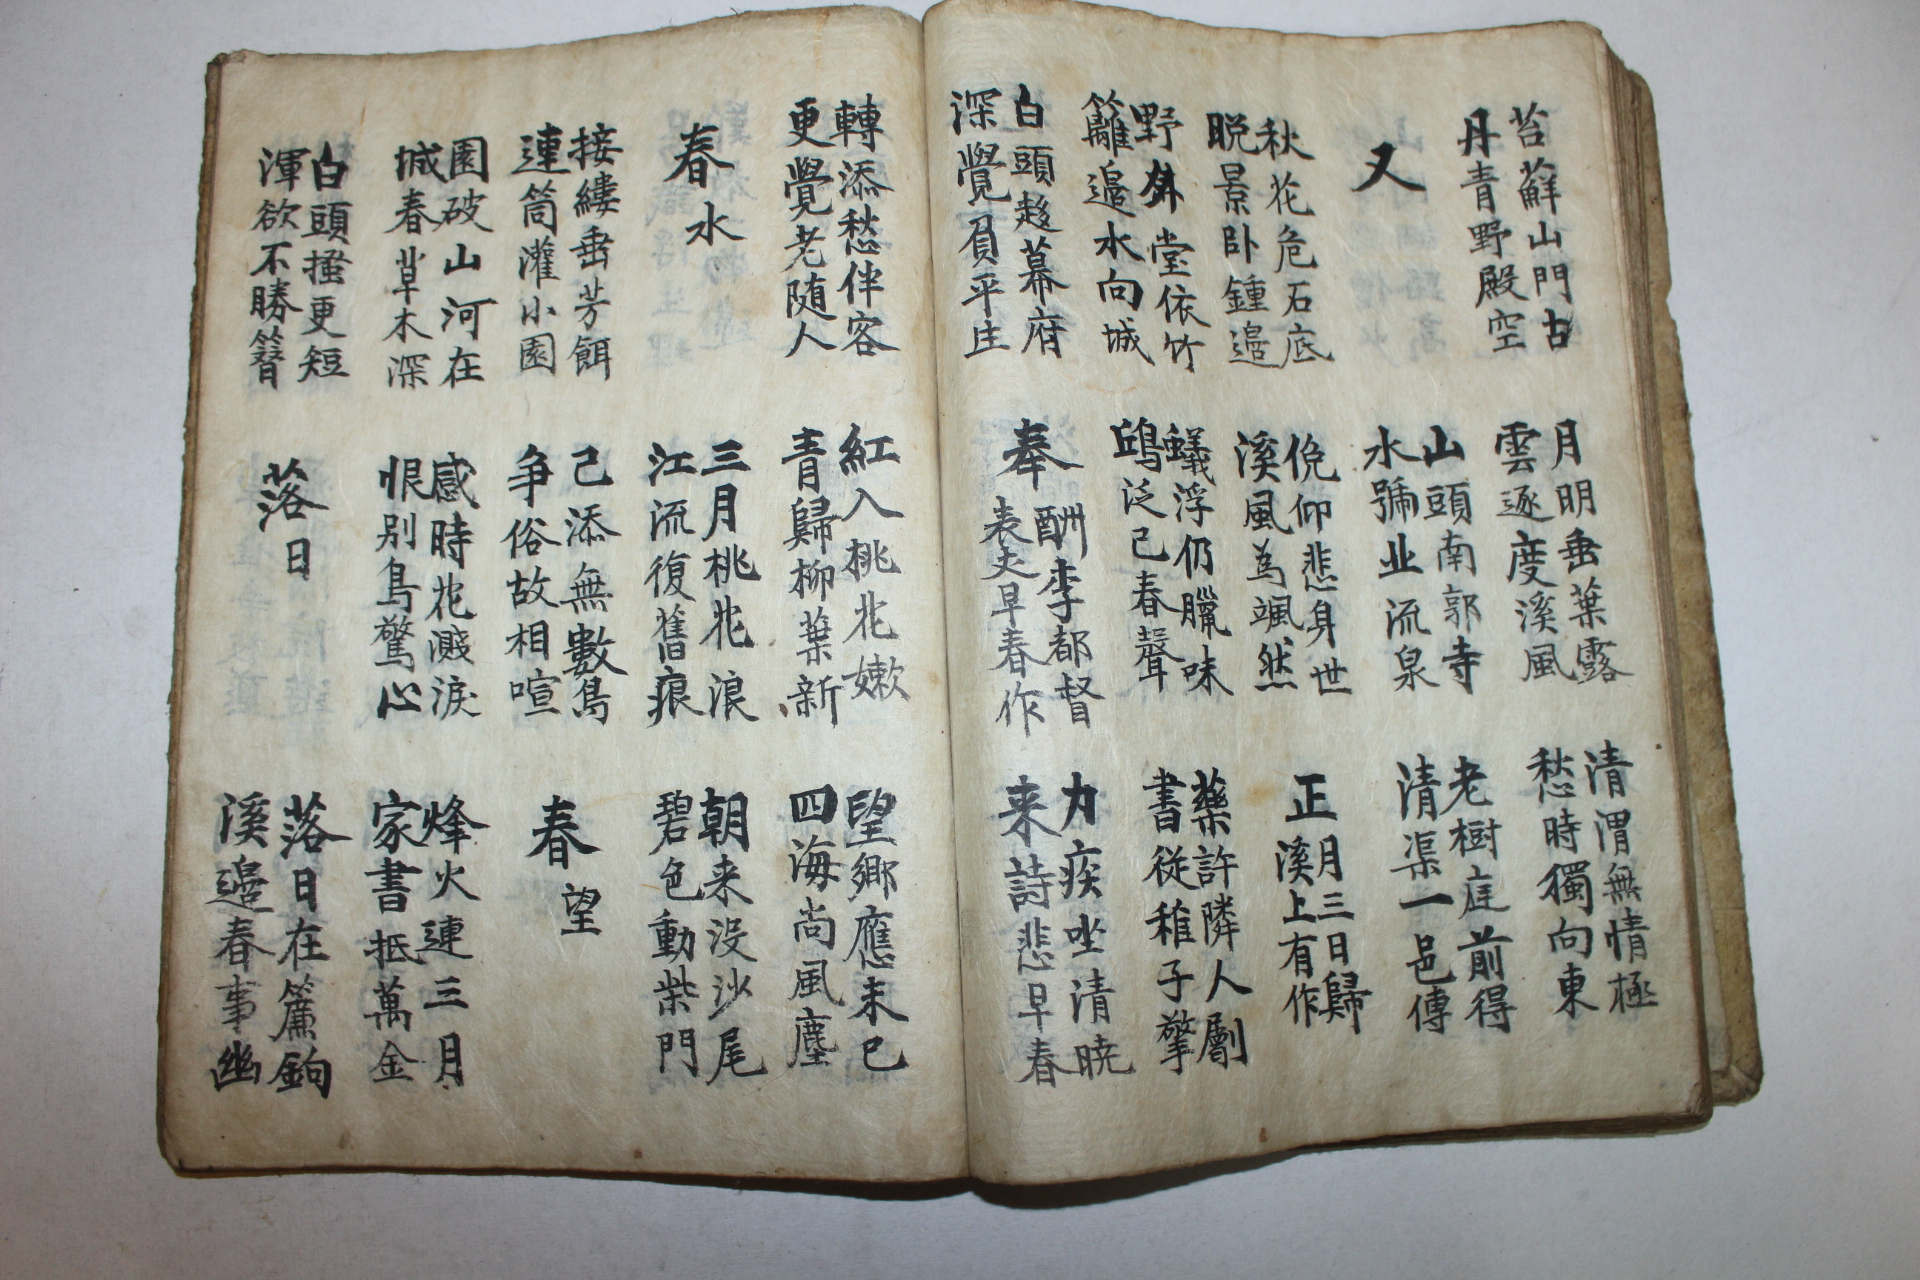 苔蘚山門古
丹青野殿空
月明垂葉露
雲逐度溪風
清渭無情極
愁時獨向東
又
山頭南郭寺
水號北流泉
老樹庭前得
清渠一邑傳
秋花危石底
晩景卧鍾邉
俛仰悲身世
溪風為颯然
正月三日歸
溪上有作
野外堂依竹
籬邉水向城
蟻浮仍臘味
鷗泛已春聲
藥許隣人劚
書從稚子擎
白頭趍幕府
深覺負平生
奉酬李都督
表丈早春作
力疾坐清暁
来詩悲早春
轉添愁伴客
更覺老随人
紅入桃花嫩
青歸柳葉新
望鄉應未已
四海尚風塵
春水
三月桃花浪
江流復舊痕
朝来没沙尾
碧色動柴門
接縷垂芳餌
連筒灌小園
已添無數鳥
争俗故相喧
春望
國破山河在
城春草木深
感時花濺淚
恨別鳥驚心
烽火連三月
家書抵萬金
白頭搔更短
渾欲不勝簪
落日
落日在簾鉤
溪邉春事幽